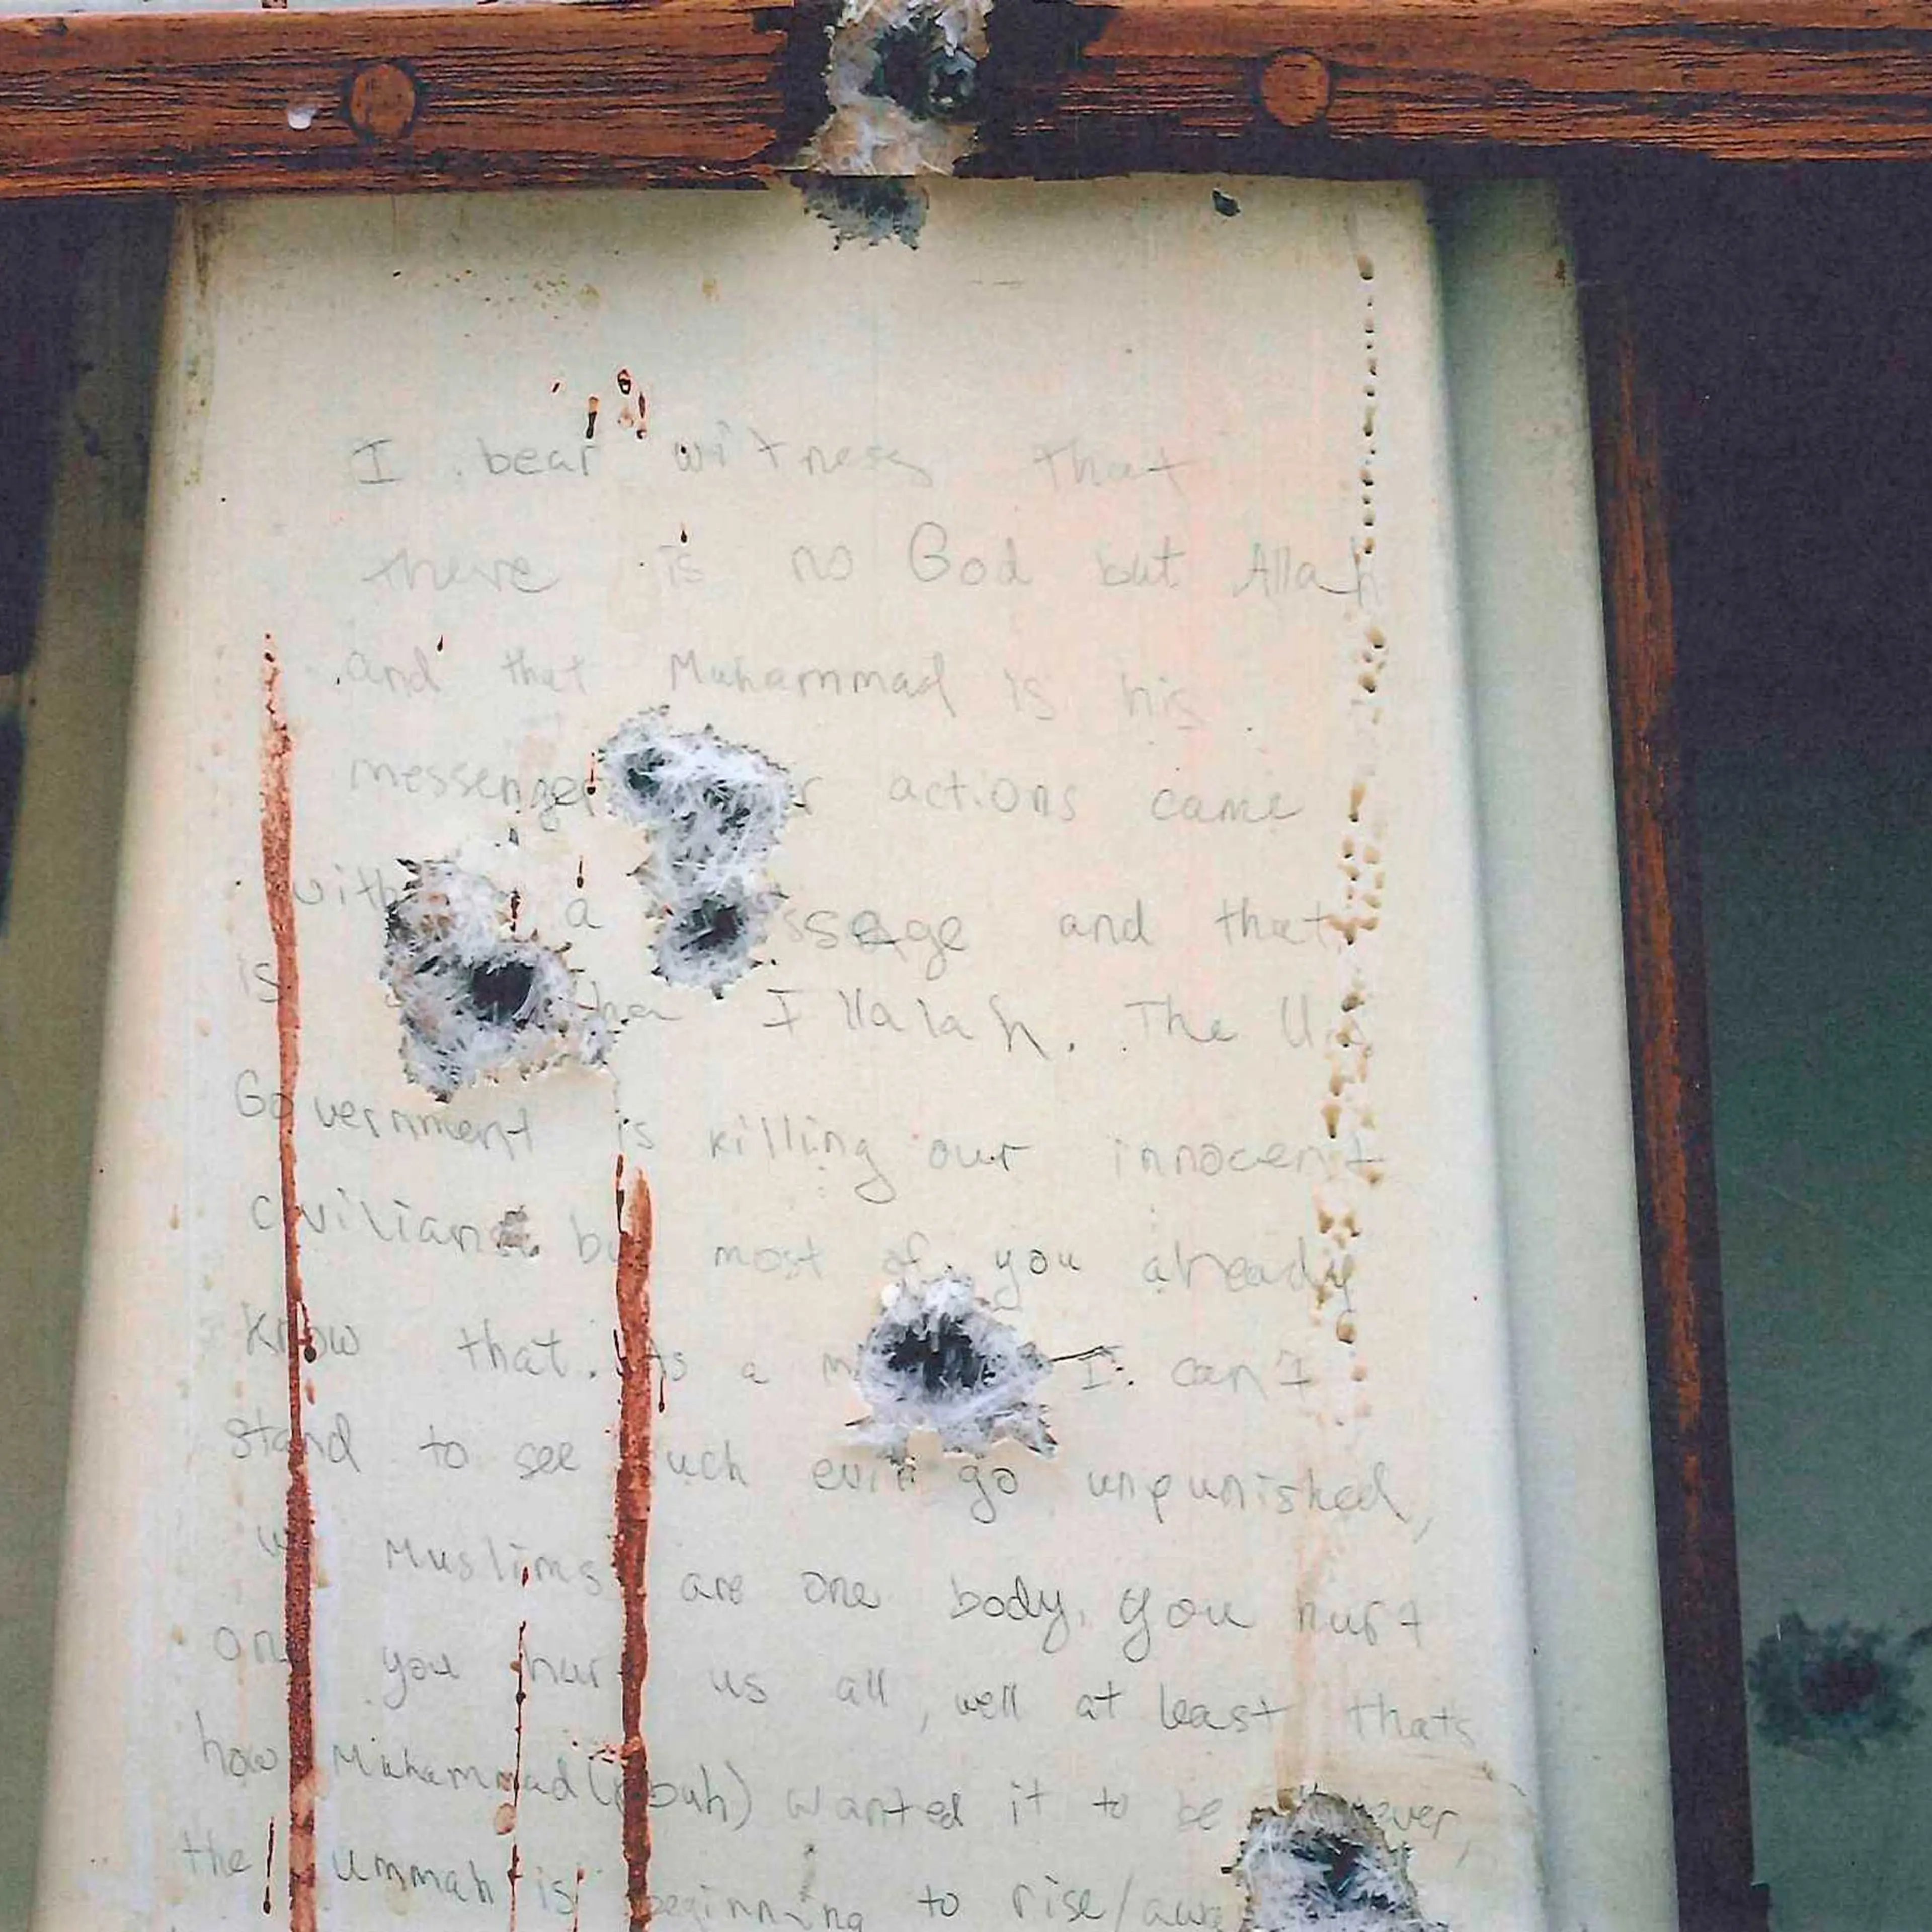 I bear witness that
there is no God but Allah
and that Muhammad is his
messenger r actions came
with a ssage and that
is Illalah. The U.S
Government is killing our innocent
civilians but most of you already
know that. As a I can't
stand to see such evil go unpunished,
we Muslims are one body, you hurt
one you hurt us all, well at least thats
how Muhammad (pbuh) wanted it to be ever,
the ummah is beginning to rise/awa